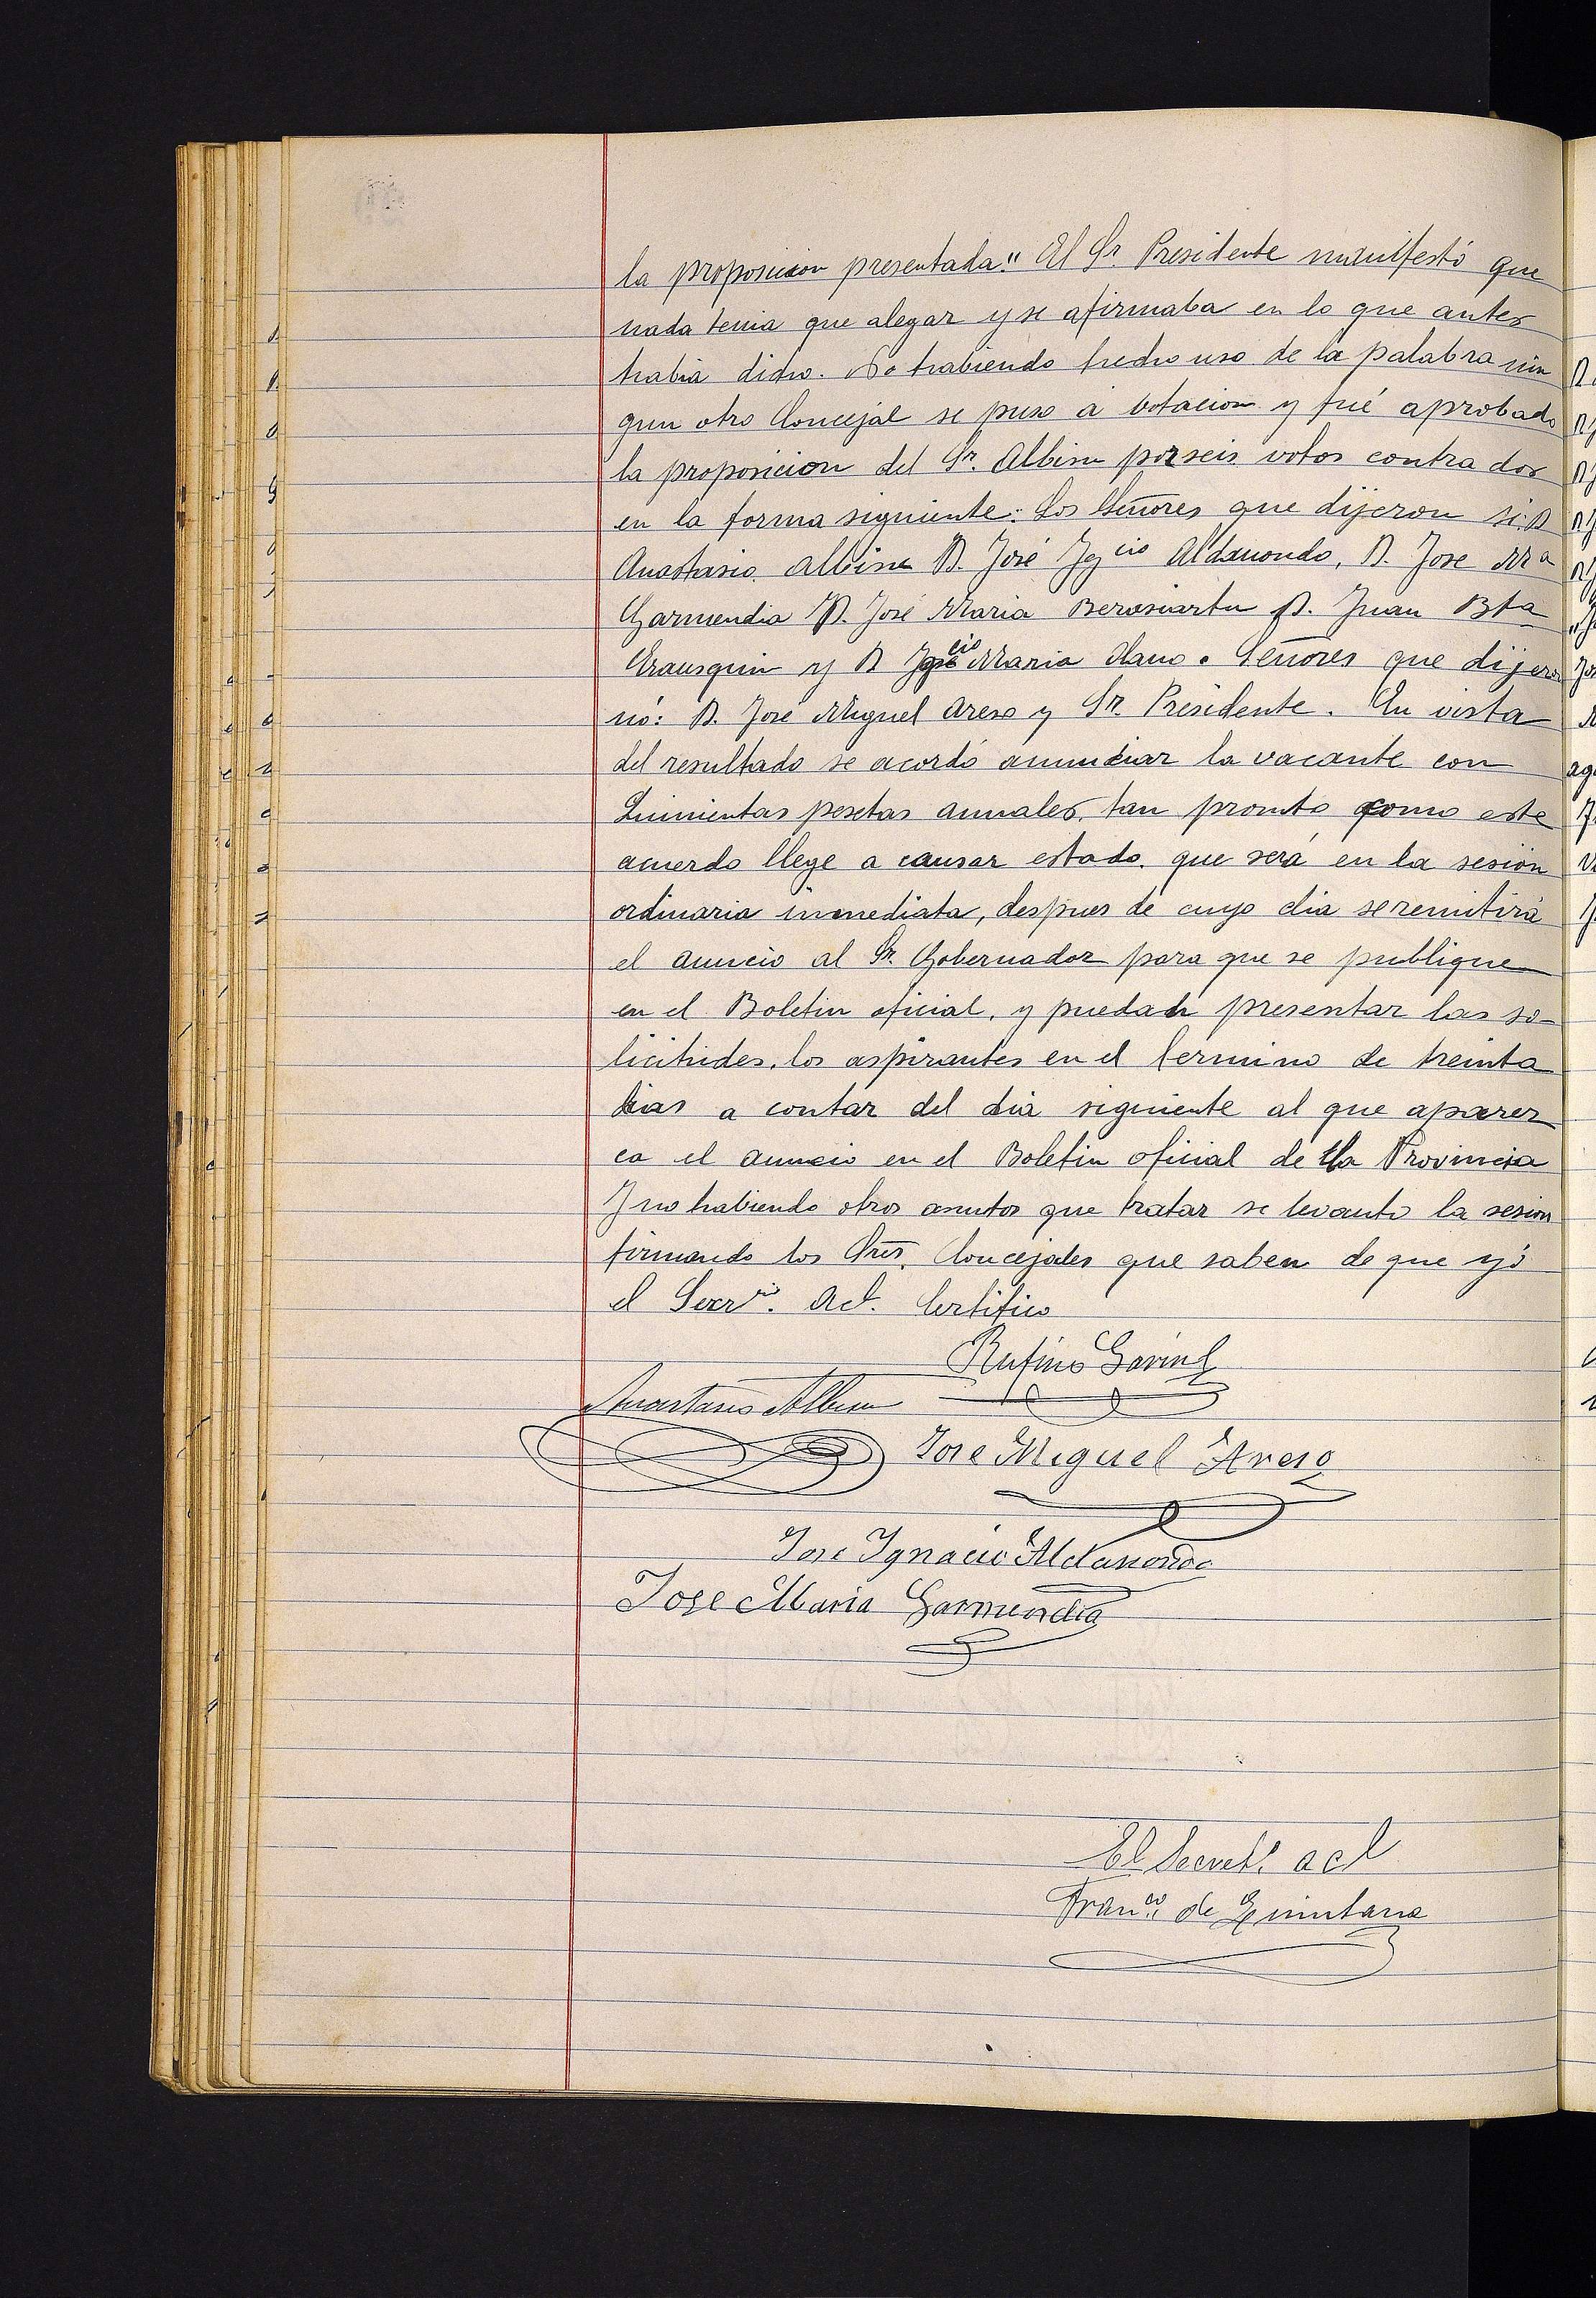 la proposicion presentada." El Sr. Presidente manifestó que
nada tenia que alegar y se afirmaba en lo que antes
habia dicho. No habiendo hecho uso de la palabra nin
gun otro Concejal se puso á votacion y fué aprobado
la proposicion del Sr. Albisu por seis votos contra dos
en la forma siguiente: Los Señores que dijeron si: D
Anastasio Albisu D. José Igcio Aldanondo, D. Jose Ma
Garmendia D. José Maria Berasiartu D. Juan Bta
Erausquin y D Igcio Maria Olano. Señores que dijeron
nó: D. José Miguel Areso y Sr. Presidente. En vista
del resultado se acordó anunciar la vacante con
Quinientas pesetas anuales, tan pronto como este
acuerdo llege a causar estado. que será en la sesion
ordinaria inmediata, despues de cuyo dia se remitirá
el anuncio al Sr. Gobernador para que se publique
en el Boletin oficial, y puedan presentar las so-
licitudes, los aspirantes en el termino de treinta
dias a contar del dia siguiente al que aparez
ca el anuncio en el Boletin oficial de la Provincia
Y no habiendo otros asuntos que tratar se levanto la sesion
firmando los Sres. Concejales que saben de que yó
el Secrio. Act. Certifico
Rufino
Anastasio Albisu
Jose Miguel Areso
Jose Ignacio Aldanondo
Jose Maria Garmendia
El Secret.o acl
Franco. de Quintana